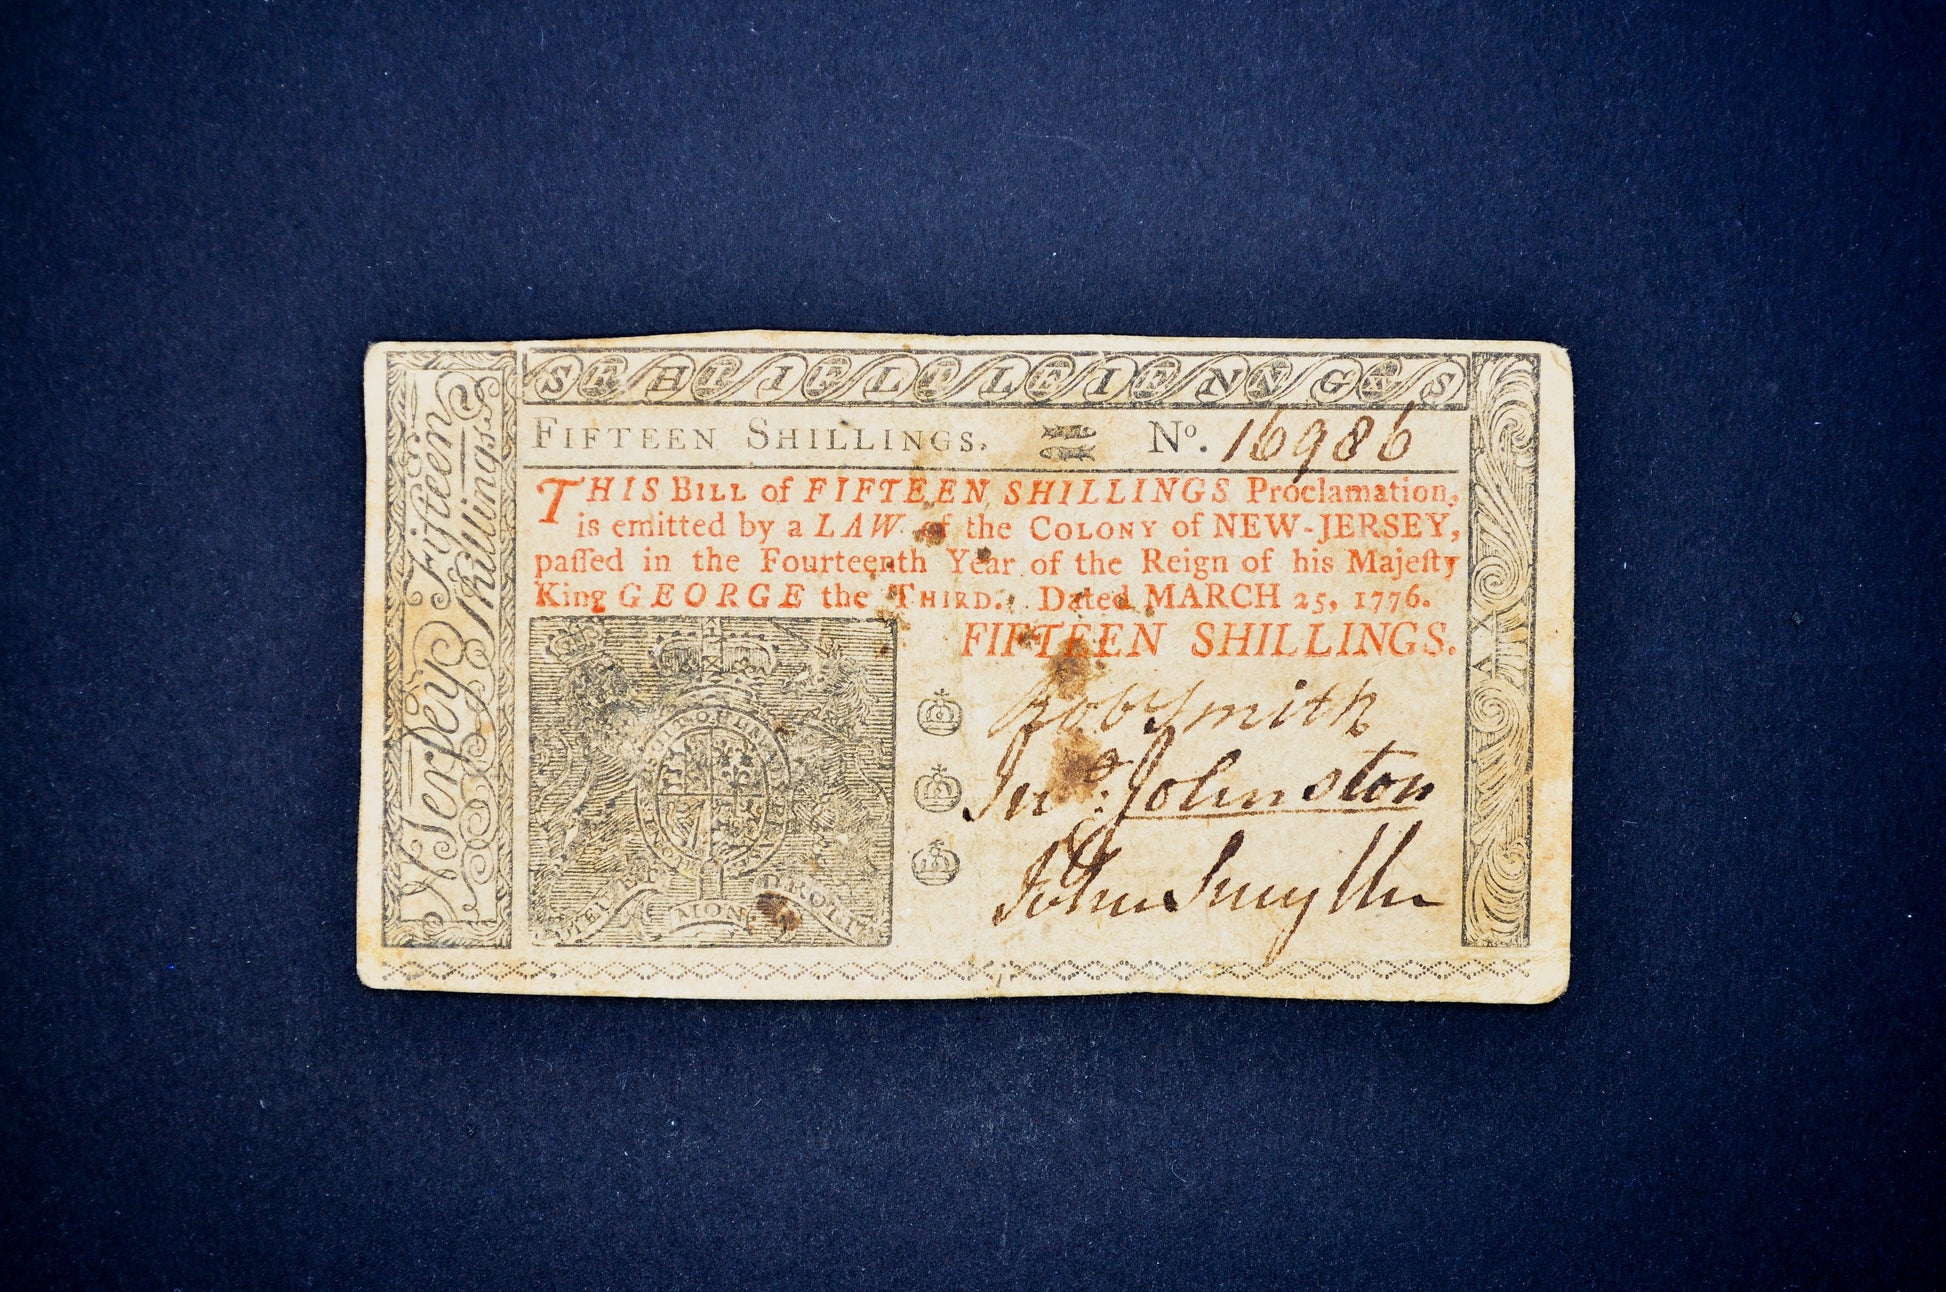 SEHIFIFLTLEIENNGS
FIFTEEN SHILLINGS. No. 16986
THIS BILL of FIFTEEN SHILLINGS Proclamation,
is emitted by a LAW of the COLONY of NEW-JERSEY,
paſſed in the Fourteenth Year of the Reign of his Majeſty
King GEORGE the THIRD. Dated MARCH 25, 1776.
FIFTEEN SHILLINGS.
Robt Smith
Jno: Johnston
John Smyth
Fifteen
Shillings
N Jerſey
DIEU ET
MON
DROIT